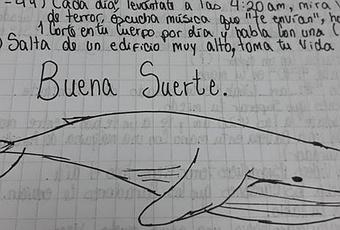 -49) Cada día, levántate a las 4:20am, mira v
de terror, escucha música que "te envían", ha
1 corte en tu cuerpo por día y habla con una (
) Salta de un edificio muy alto, toma tu vida
Buena Suerte.